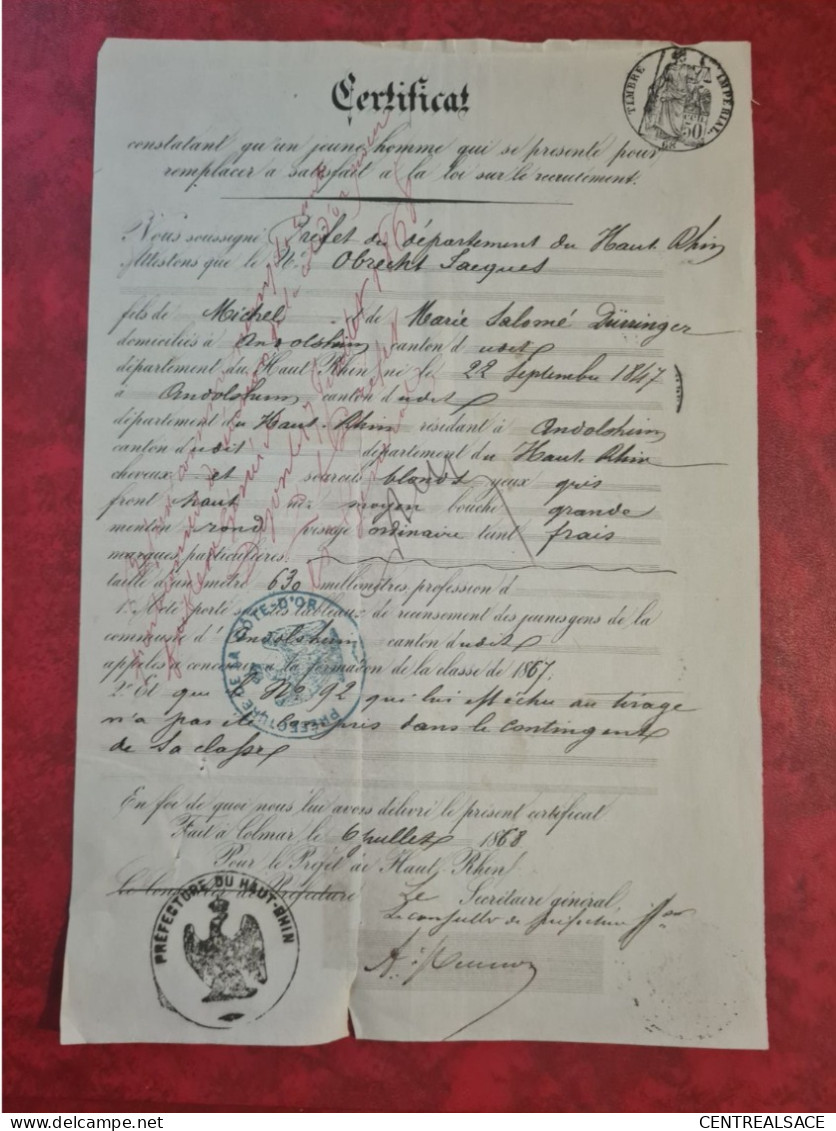 Certificat
TIMBRE IMPERIAL
50
constatant qu'un jeune homme qui se présente pour
remplacer a satisfait à la loi sur le recrutement.
Nous soussigné Préfet du département du Haut Rhin
Attestons que le Sr. Obrecht Jacques
fils de Michel et de Marie Salomé Dürringer
domiciliés à Andolsheim canton d udit
département du Haut Rhin né le 22 Septembre 1847
à Andolsheim, canton dudit
département du Haut-Rhin résidant à Andolsheim
canton dudit département du Haut Rhin
cheveux et sourcils blonds yeux gris
front haut nez moyen bouche grande
menton rond visage ordinaire teint frais
marques particulières
taille d'un mètre 630 millimètres profession d
1° A été porté sur les tableaux de recensement des jeunes gens de la
commune d'Andolsheim canton dudit
appelés à concourir à la formation de la classe de 1867,
2° Et que le No. 92 qui lui est échu au tirage
n'a pas été compris dans le contingent
de sa classe
PRÉFECTURE DE LA CÔTE-D'OR
En foi de quoi nous lui avons délivré le présent certificat
Fait à Colmar le 6 Juillet 1868
Pour le Préfet de Haut Rhin
Le Conseiller de Préfecture Le Secrétaire général,
Le conseiller de préfecture
PRÉFECTURE DU HAUT-RHIN
CENTREALSACE